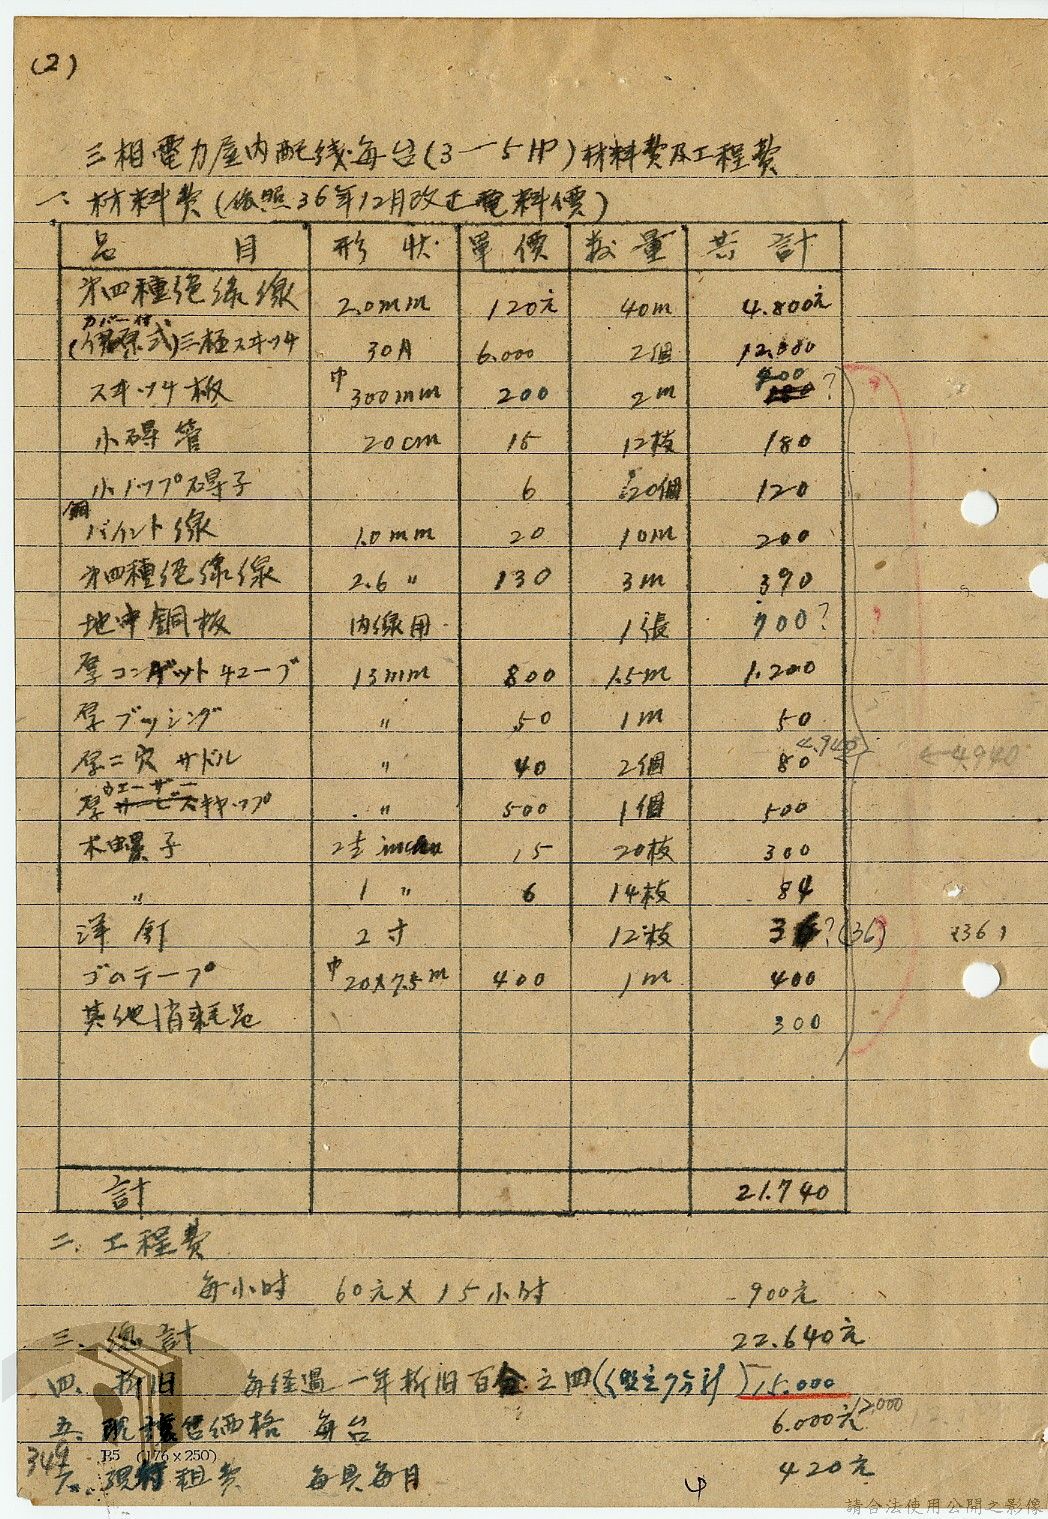 (2)
三相電力屋内配线每台(3—5HP)材料費及工程費
一、材料費(依照36年12月改正電料價)
品目 形状 單價 数量 共計
第四種絕緣線 2.0mm 120元 40m 4.800元
カバー付
(伊原式)三極スヰッチ 30A 6.000 2個 12.000
スヰッチ板 巾300mm 200 2m 400 ?
小碍管 20cm 15 12枝 180
小ノップ碍子 6 20個 120
銅バイント線 1.0mm 20 10m 200
第四種絕緣線 2.6〃 130 3m 390
地中銅板 内線用 1張 700?
厚コンヂットチューブ 13mm 800 1.5m 1.200
厚ブッシング 〃 50 1m 50
厚二穴サドル 〃 40 2個 80
4.940 ←4.940
ウエーザー
厚サービスキャップ 〃 500 1個 500
木螺子 2½ inch 15 20枝 300
〃 1〃 6 14枝 84
洋釘 2寸 12枝 36?(36) (36)
ゴムテープ 巾20×7.5m 400 1m 400
其他消耗品 300
計 21.740
二、工程費
每小时 60元×15小时 900元
三、總計 22.640元
四、折旧 每経過一年折旧百分之四 15.000
五、現讓售価格 每台 6.000元 12.000
六、現行租費 每具每月 420元
349
B5 (176×250)
請合法使用公開之影像